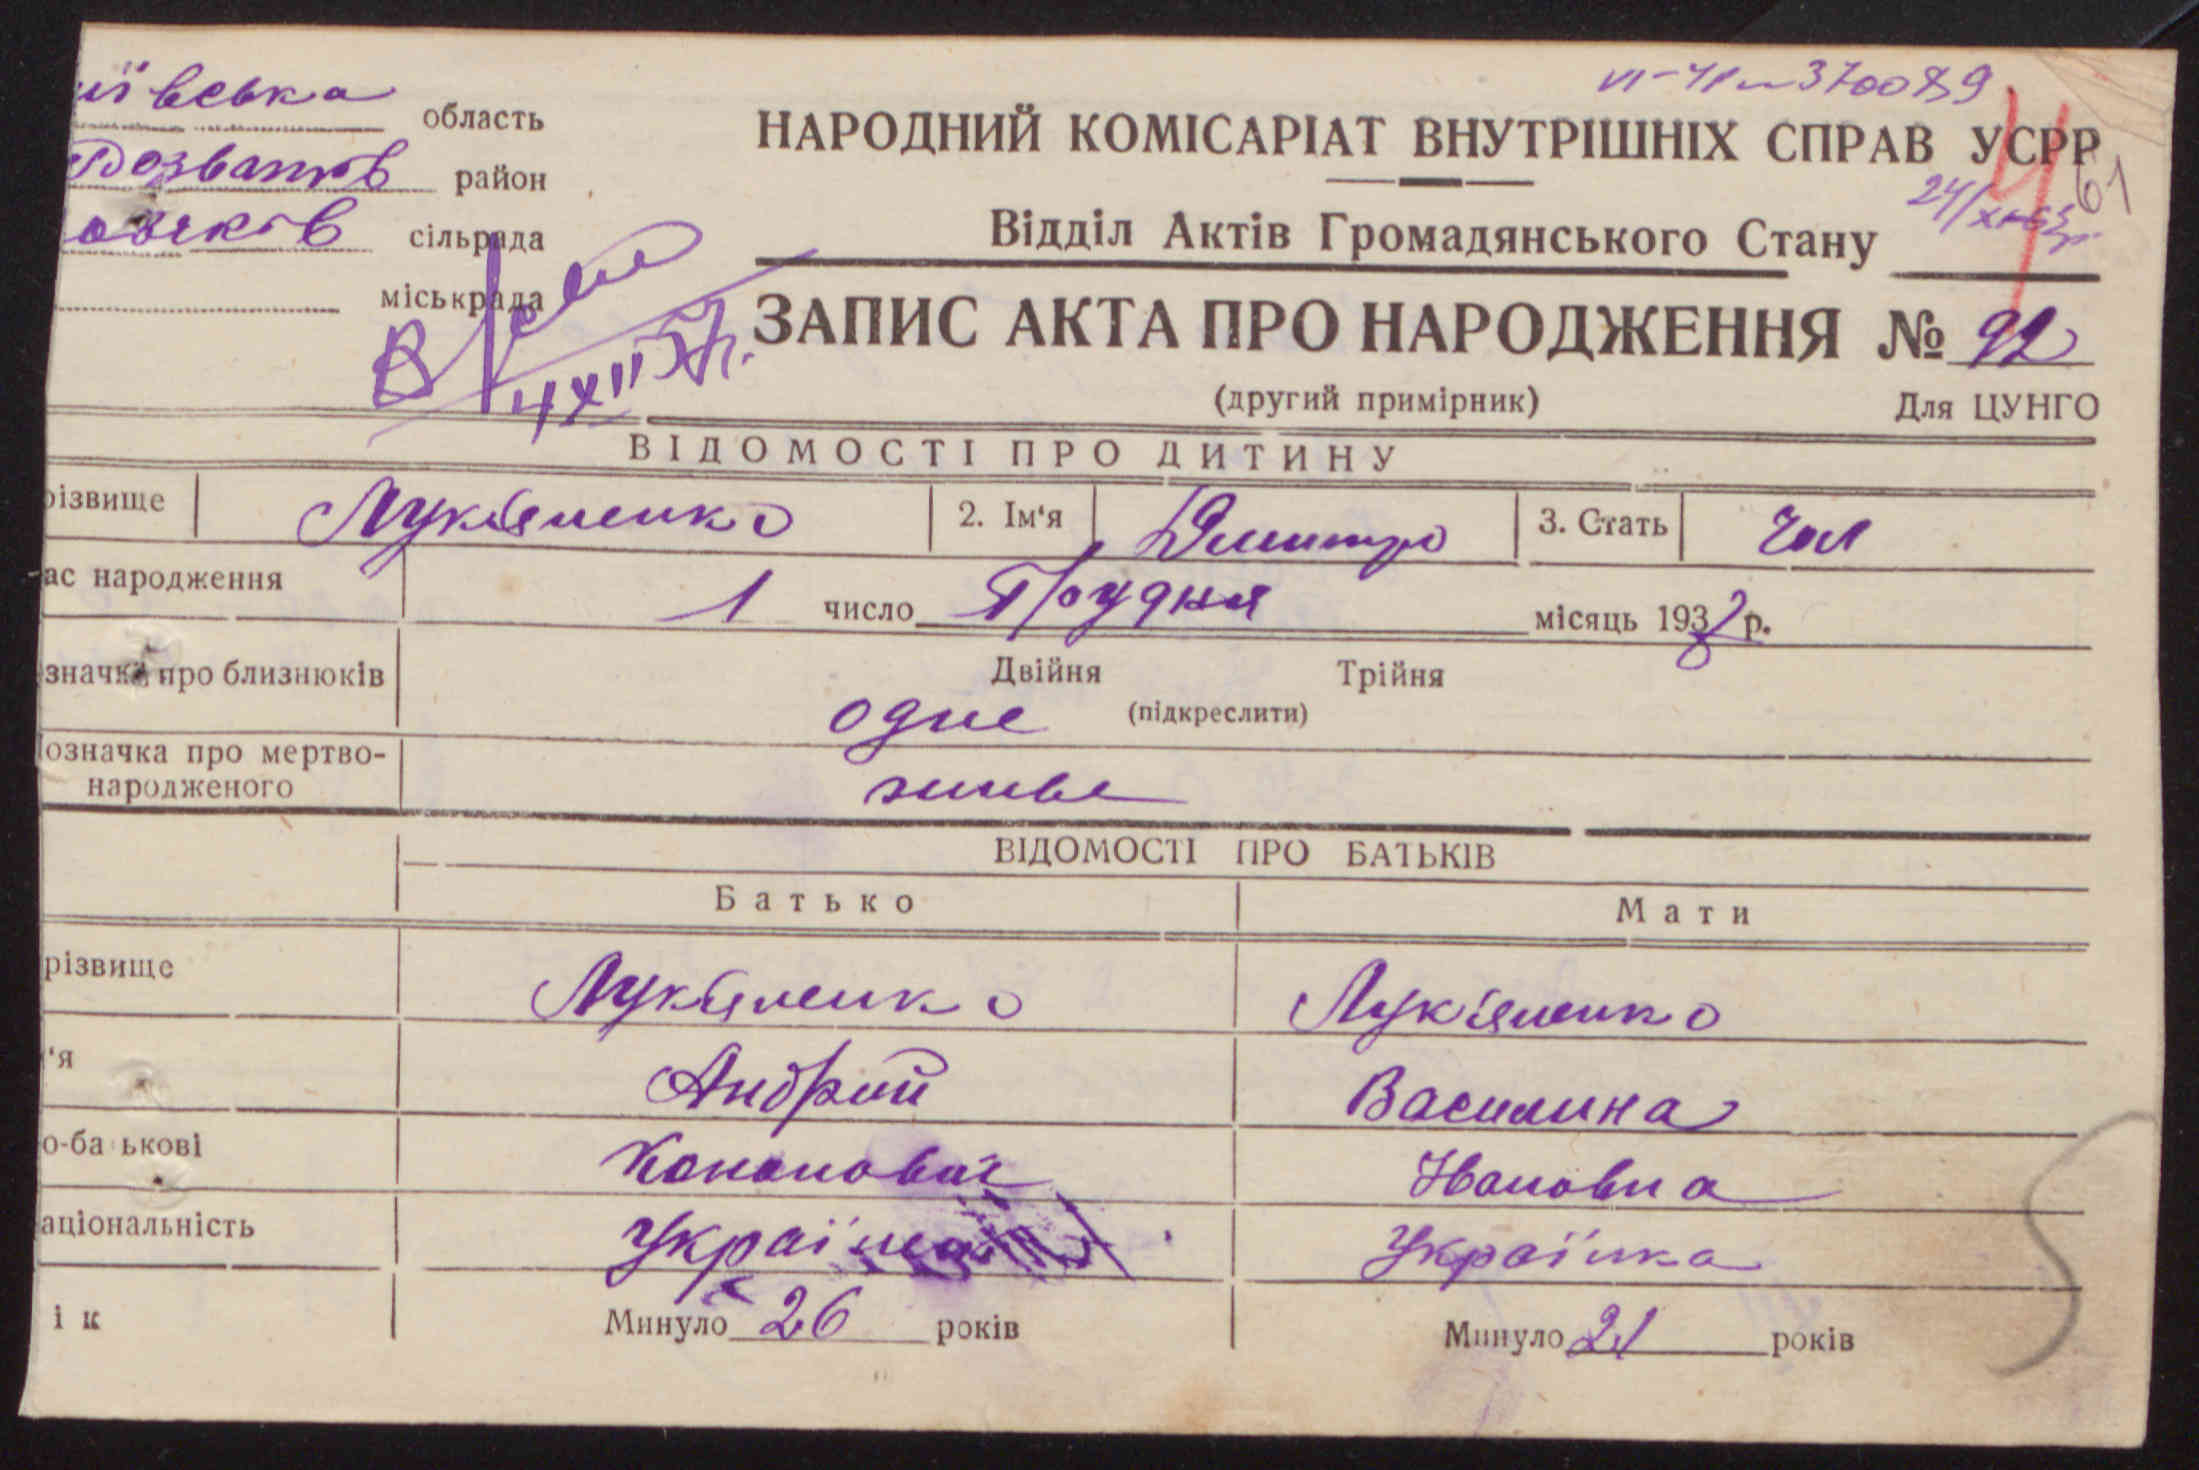 ївська область
Розважів район
сільрада
міськрада
НАРОДНИЙ КОМІСАРІАТ ВНУТРІШНІХ СПРАВ УСРР
61
Відділ Актів Громадянського Стану
ЗАПИС АКТА ПРО НАРОДЖЕННЯ № 92
(другий примірник) Для ЦУНГО
ВІДОМОСТІ ПРО ДИТИНУ
різвище Лук'яненко 2. Ім'я Дмитро 3. Стать Чол
ас народження 1 число Грудня місяць 1932 р.
значка про близнюків Двійня Трійня
одне (підкреслити)
означка про мертво-
народженого живе
ВІДОМОСТІ ПРО БАТЬКІВ
Батько Мати
різвище Лук'яненко Лук'яненко
'я Андрій Василина
о-ба ькові Кононович Ивановна
аціональність Українка
ік Минуло 26 років Минуло 21 років